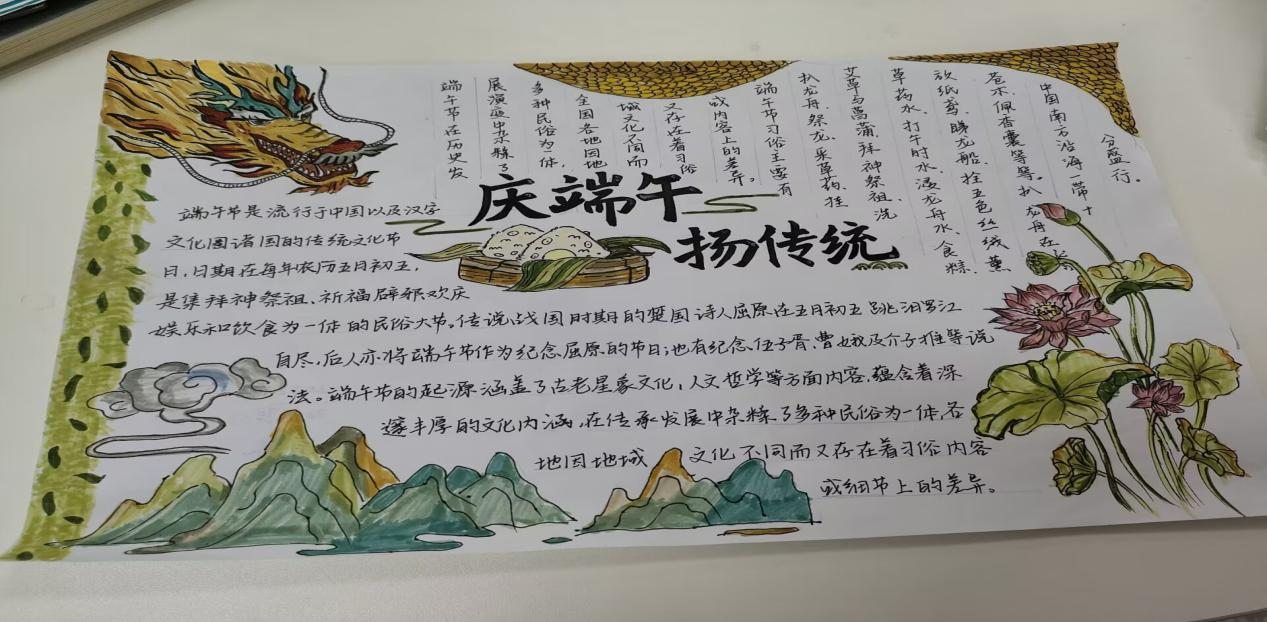 庆端午
扬传统
端午节在历史发
展演变中杂糅了
多种民俗为一体,
全国各地因地
域文化不同而
又存在着习俗
或内容上的差异。
端午节习俗主要有
扒龙舟、祭龙、采草药、挂
艾草与菖蒲、拜神祭祖、洗
草药水、打午时水、浸龙舟水、食粽、
放纸鸢、睇龙船、拴五色丝线、薰
苍术、佩香囊等等。扒龙舟在
中国南方沿海一带十
分盛行。
端午节是流行于中国以及汉字
文化圈诸国的传统文化节
日,日期在每年农历五月初五,
是集拜神祭祖、祈福辟邪欢庆
娱乐和饮食为一体的民俗大节。传说战国时期的楚国诗人屈原在五月初五跳汨罗江
自尽,后人亦将端午节作为纪念屈原的节日;也有纪念伍子胥、曹娥及介子推等说
法。端午节的起源涵盖了古老星象文化,人文哲学等方面内容,蕴含着深
邃丰厚的文化内涵,在传承发展中杂糅了多种民俗为一体,各
地因地域文化不同而又存在着习俗内容
或细节上的差异。